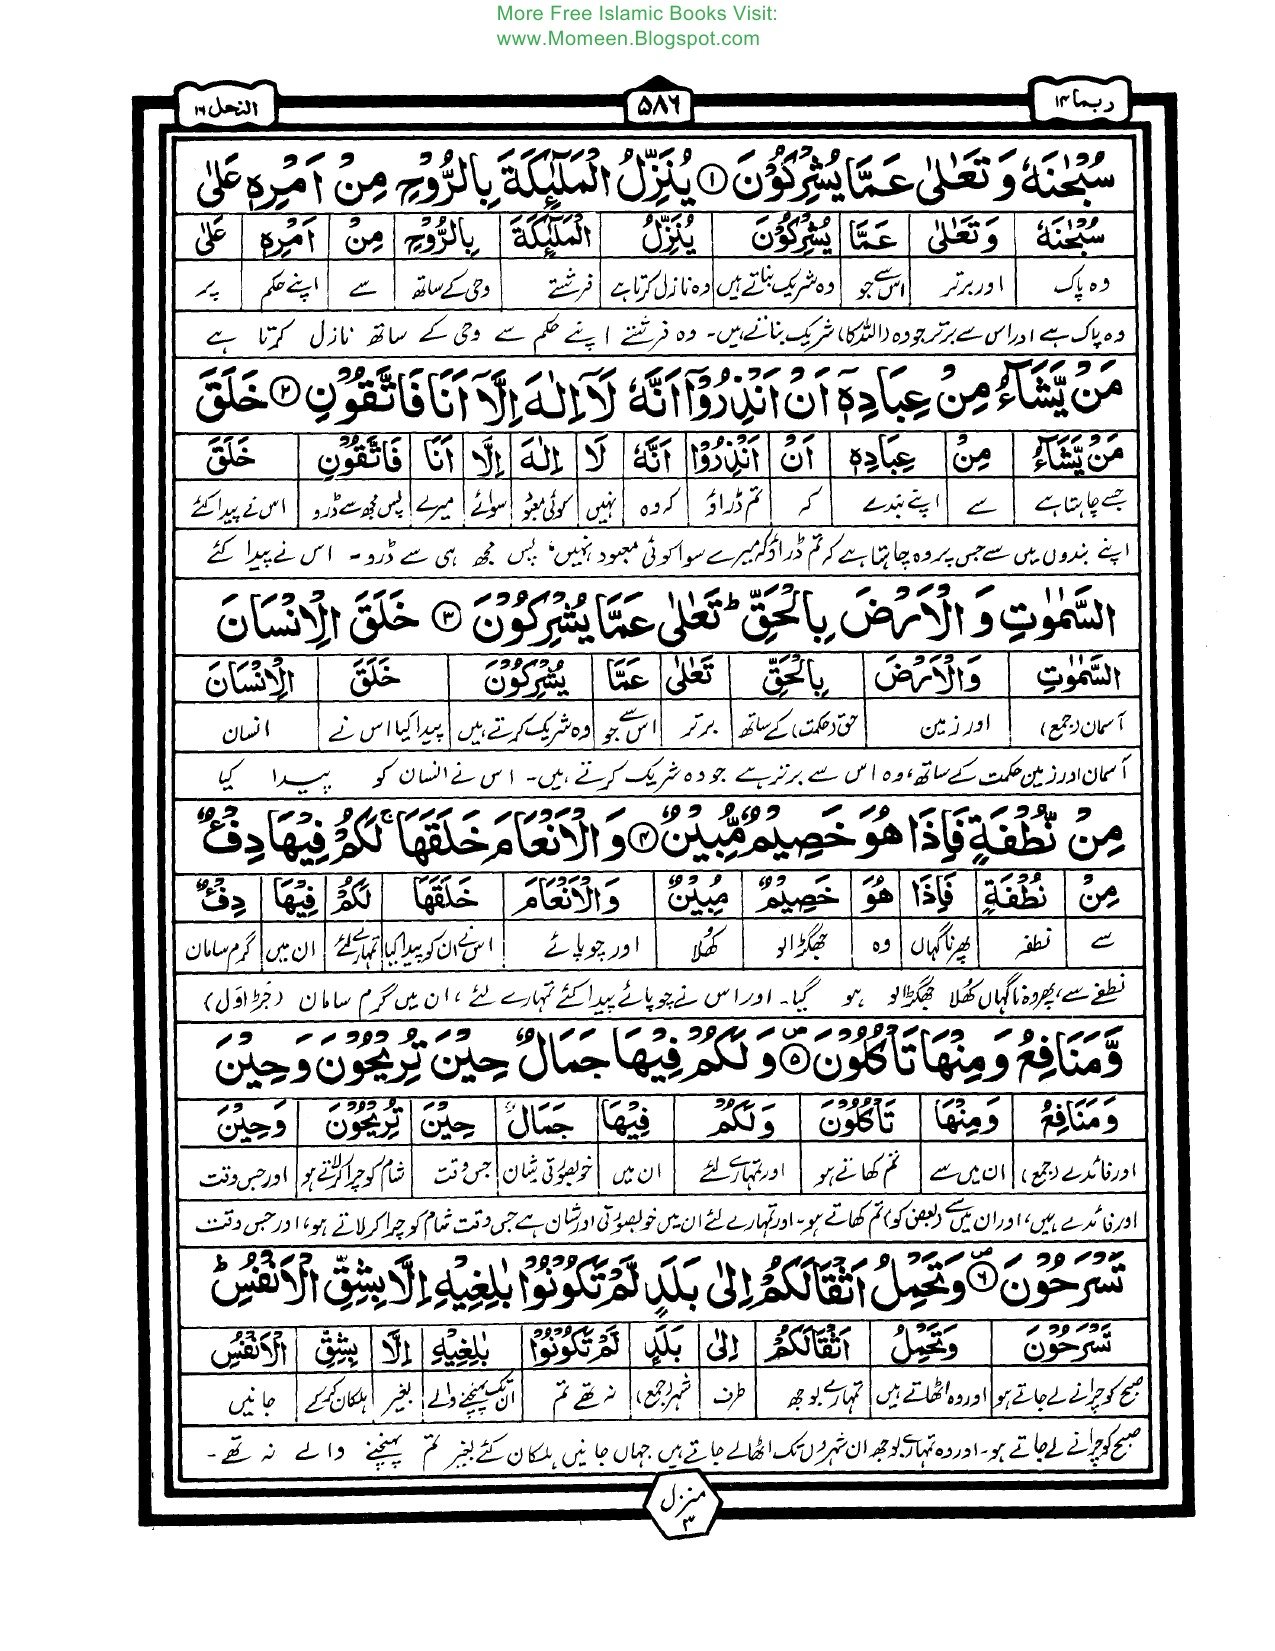 More Free Islamic Books Visit:
www.Momeen.Blogspot.com
ربما ۱۴
۵۸۶
النحل ۱۶
سُبْحٰنَهٗ وَ تَعٰلٰی عَمَّا یُشْرِكُوْنَ ۱ یُنَزِّلُ الْمَلٰٓئِكَةَ بِالرُّوْحِ مِنْ اَمْرِهٖ عَلٰی
سُبْحٰنَهٗ وَ تَعٰلٰی عَمَّا یُشْرِكُوْنَ یُنَزِّلُ الْمَلٰٓئِكَةَ بِالرُّوْحِ مِنْ اَمْرِهٖ عَلٰی
وہ پاک اور برتر اس سے جو وہ شریک بناتے ہیں وہ نازل کرتا ہے فرشتے وحی کے ساتھ سے اپنے حکم پر
وہ پاک ہے اور اس سے برتر جو وہ (اللہ کا) شریک بناتے ہیں۔ وہ فرشتے اپنے حکم سے وحی کے ساتھ نازل کرتا ہے
مَنْ یَّشَآءُ مِنْ عِبَادِهٖۤ اَنْ اَنْذِرُوْۤا اَنَّهٗ لَاۤ اِلٰهَ اِلَّاۤ اَنَا فَاتَّقُوْنِ ۲ خَلَقَ
مَنْ یَّشَآءُ مِنْ عِبَادِهٖۤ اَنْ اَنْذِرُوْۤا اَنَّهٗ لَا اِلٰهَ اِلَّا اَنَا فَاتَّقُوْنِ خَلَقَ
جسے چاہتا ہے سے اپنے بندے کہ تم ڈراؤ کہ وہ نہیں کوئی معبود سوائے میرے پس مجھ سے ڈرو اس نے پیدا کئے
اپنے بندوں میں سے جس پر وہ چاہتا ہے کہ تم ڈراؤ کہ میرے سوا کوئی معبود نہیں، پس مجھ ہی سے ڈرو۔ اس نے پیدا کئے
السَّمٰوٰتِ وَ الْاَرْضَ بِالْحَقِّ ؕ تَعٰلٰی عَمَّا یُشْرِكُوْنَ ۳ خَلَقَ الْاِنْسَانَ
السَّمٰوٰتِ وَالْاَرْضَ بِالْحَقِّ تَعٰلٰی عَمَّا یُشْرِكُوْنَ خَلَقَ الْاِنْسَانَ
آسمان (جمع) اور زمین حق (حکمت) کے ساتھ برتر اس سے جو وہ شریک کرتے ہیں پیدا کیا اس نے انسان
آسمان اور زمین حکمت کے ساتھ، وہ اس سے برتر ہے جو وہ شریک کرتے ہیں۔ اس نے انسان کو پیدا کیا
مِنْ نُّطْفَةٍ فَاِذَا هُوَ خَصِیْمٌ مُّبِیْنٌ ۴ وَ الْاَنْعَامَ خَلَقَهَا ۚ لَكُمْ فِیْهَا دِفْءٌ
مِنْ نُطْفَةٍ فَاِذَا هُوَ خَصِیْمٌ مُبِیْنٌ وَالْاَنْعَامَ خَلَقَهَا لَكُمْ فِیْهَا دِفْءٌ
سے نطفہ پھر ناگہاں وہ جھگڑالو کھلا اور چوپائے اس نے ان کو پیدا کیا تمہارے لئے ان میں گرم سامان
نطفے سے، پھر وہ ناگہاں کھلا جھگڑالو ہو گیا۔ اور اس نے چوپائے پیدا کئے تمہارے لئے، ان میں گرم سامان (جڑاول)
وَّ مَنَافِعُ وَ مِنْهَا تَاْكُلُوْنَ ۵ وَ لَكُمْ فِیْهَا جَمَالٌ حِیْنَ تُرِیْحُوْنَ وَ حِیْنَ
وَ مَنَافِعُ وَ مِنْهَا تَاْكُلُوْنَ وَ لَكُمْ فِیْهَا جَمَالٌ حِیْنَ تُرِیْحُوْنَ وَحِیْنَ
اور فائدے (جمع) ان میں سے تم کھاتے ہو اور تمہارے لئے ان میں خوبصورتی شان جس وقت شام کو چرا کر لاتے ہو اور جس وقت
اور فائدے ہیں، اور ان میں سے (بعض کو) تم کھاتے ہو۔ اور تمہارے لئے ان میں خوبصورتی اور شان ہے جس وقت شام کو چرا کر لاتے ہو، اور جس وقت
تَسْرَحُوْنَ ۶ وَ تَحْمِلُ اَثْقَالَكُمْ اِلٰی بَلَدٍ لَّمْ تَكُوْنُوْا بٰلِغِیْهِ اِلَّا بِشِقِّ الْاَنْفُسِ ؕ
تَسْرَحُوْنَ وَتَحْمِلُ اَثْقَالَكُمْ اِلٰی بَلَدٍ لَمْ تَكُوْنُوْا بٰلِغِیْهِ اِلَّا بِشِقِّ الْاَنْفُسِ
صبح کو چرانے لے جاتے ہو اور وہ اٹھاتے ہیں تمہارے بوجھ طرف شہر (جمع) نہ تھے تم ان تک پہنچنے والے بغیر ہلکان کر کے جانیں
صبح کو چرانے لے جاتے ہو۔ اور وہ تمہارے بوجھ ان شہروں تک اٹھا لے جاتے ہیں جہاں جانیں ہلکان کئے بغیر تم پہنچنے والے نہ تھے۔
منزل
۳